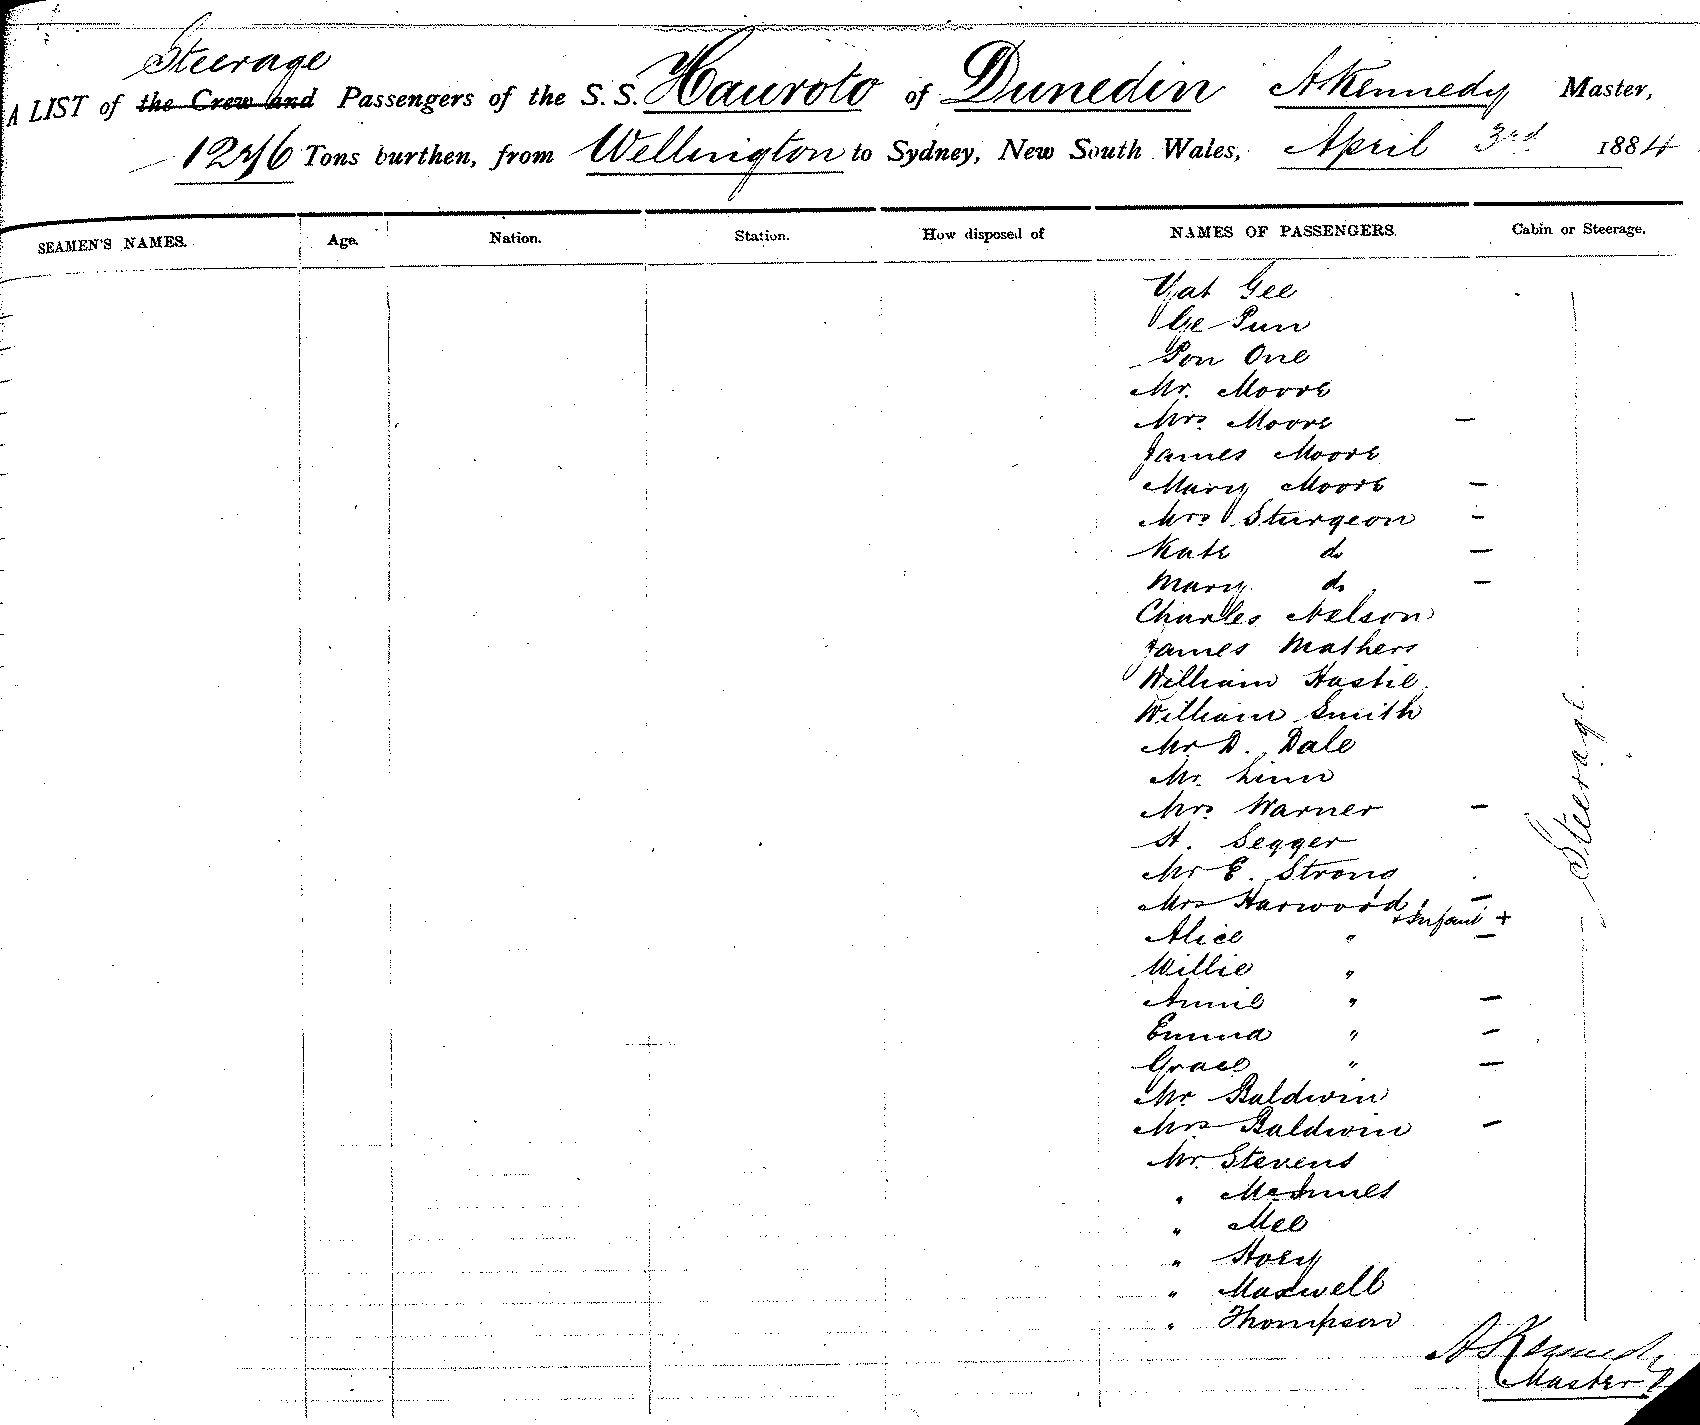 Steerage
A LIST of the Crew and Passengers of the S.S. Hauroto of Dunedin A Kennedy Master,
1276 Tons burthen, from Wellington to Sydney, New South Wales, April 3rd 1884
SEAMEN'S NAMES. Age. Nation. Station. How disposed of NAMES OF PASSENGERS. Cabin or Steerage.
Yat Gee
Ge Pun
Pon One
Mr. Moore
Mrs Moore —
James Moore
Mary Moore —
Mrs Sturgeon —
Kate do —
Mary do —
Charles Nelson
James Mathers
William Hastie
William Smith
Mr D. Dale
Mr. Linn
Mrs Warner —
H. Segger
Mr E. Strong
Mrs Harwood —
+ Infant +
Alice " —
Willie "
Annie " —
Emma " —
Grace " —
Mr Baldwin
Mrs Baldwin —
Mr. Stevens
" McInnes
" Mee
" Hoey
" Maxwell
" Thompson
Steerage
A Kennedy
Master